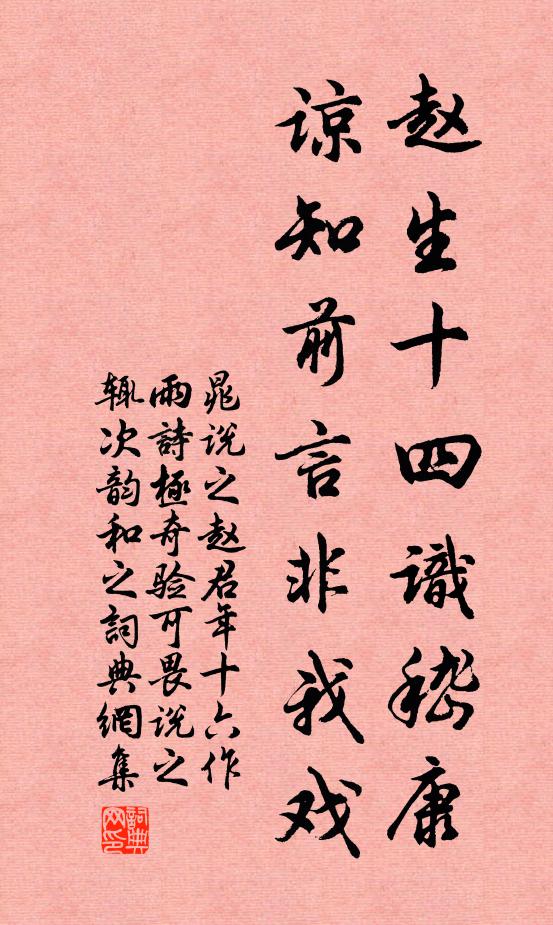 赵生十四識嵇康
谅知前言非我戏
晁说之赵君年十六作
雨詩極奇验可畏说之
辄次韵和之詞典網集
詞典网印